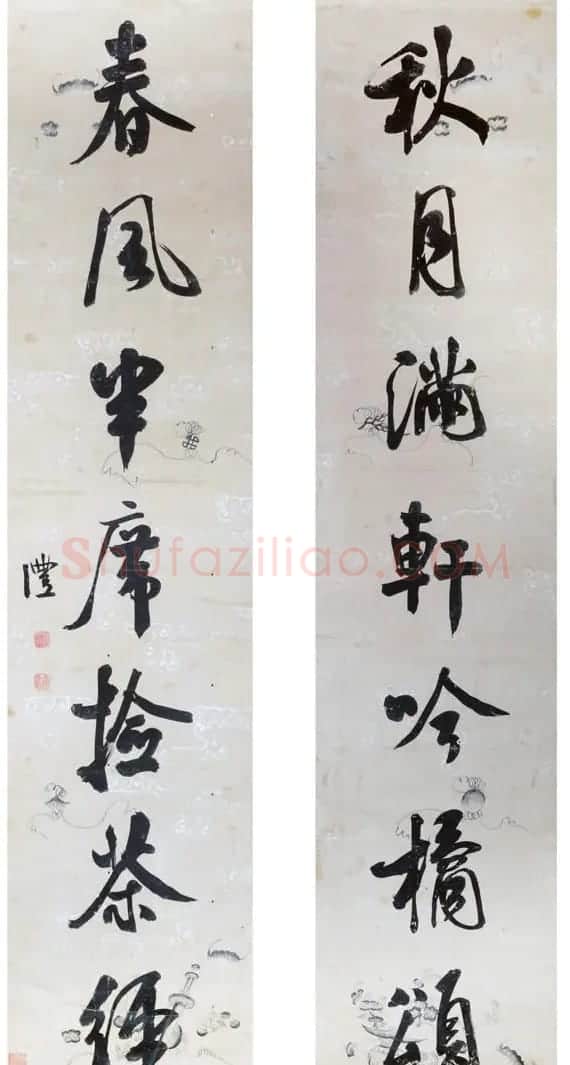 秋月滿軒吟橘頌
春風半席撿茶經
澧
Shufaziliao.COM